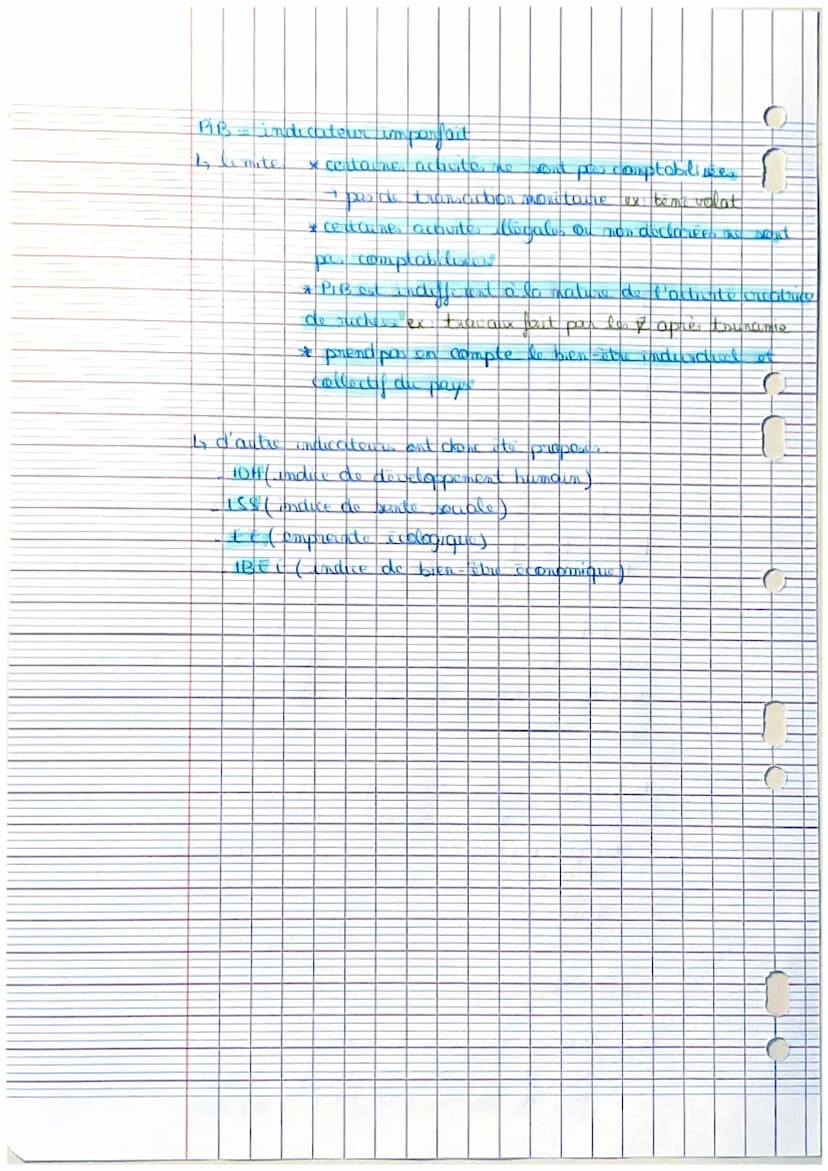 PiB = indicateur imparfait
↳ limites * certaines activités ne sont pas comptabilisées
→ pas de transaction monitaire ex: bénévolat
* certaines activités illégales ou non déclarées ne sont
pas comptabilisées
* PiB est indifférent à la nature de l'activité créatrice
de richesse ex: travaux fait par les après tsunamie
* prend pas en compte le bien-être individuel et
collectif du pays
↳ d'autre indicateurs ont donc été proposés
- IDH (indice de développement humain)
- ISS (indice de santé sociale)
- EE (empreinte écologique)
- IBEE (indice de bien-être économique)